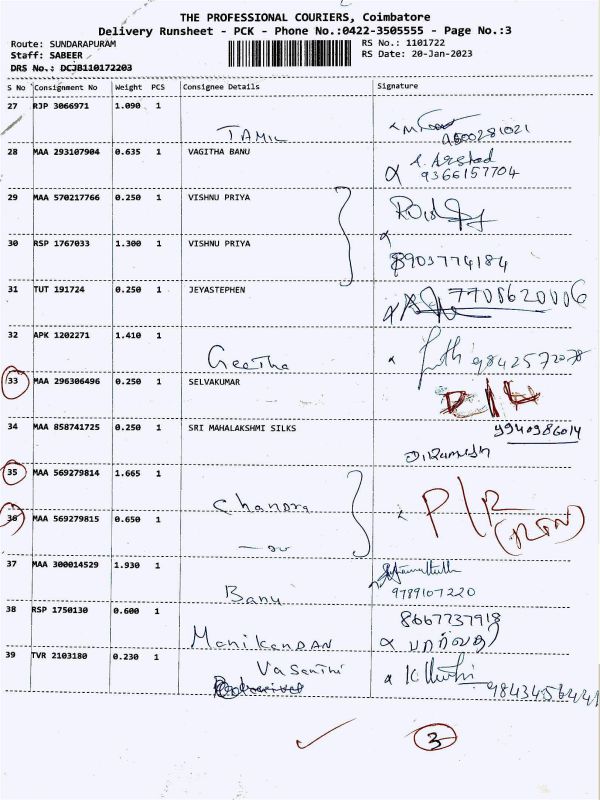 THE PROFESSIONAL COURIERS, Coimbatore
Delivery Runsheet - PCK - Phone No.:0422-3505555 - Page No.:3
Route: SUNDARAPURAM RS No.: 1101722
Staff: SABEER RS Date: 20-Jan-2023
DRS No.: DCJB110172203
S No Consignment No Weight PCS Consignee Details Signature
27 RJP 3066971 1.090 1
TAMIL 9500281021
28 MAA 293107904 0.635 1 VAGITHA BANU
A. Arshad
9366157704
29 MAA 570217766 0.250 1 VISHNU PRIYA
30 RSP 1767033 1.300 1 VISHNU PRIYA
8903774184
31 TUT 191724 0.250 1 JEYASTEPHEN 7708620006
32 APK 1202271 1.410 1
Geetha 9842572078
33 MAA 296306496 0.250 1 SELVAKUMAR
34 MAA 858741725 0.250 1 SRI MAHALAKSHMI SILKS 9940986014
35 MAA 569279814 1.665 1
Chandra P/R
36 MAA 569279815 0.650 1 (RTN)
37 MAA 300014529 1.930 1
Banu 9789107220
38 RSP 1750130 0.600 1 8667737918
Manikandan பார்வதி
39 TVR 2103180 0.230 1 Vasanthi
9843456441
3